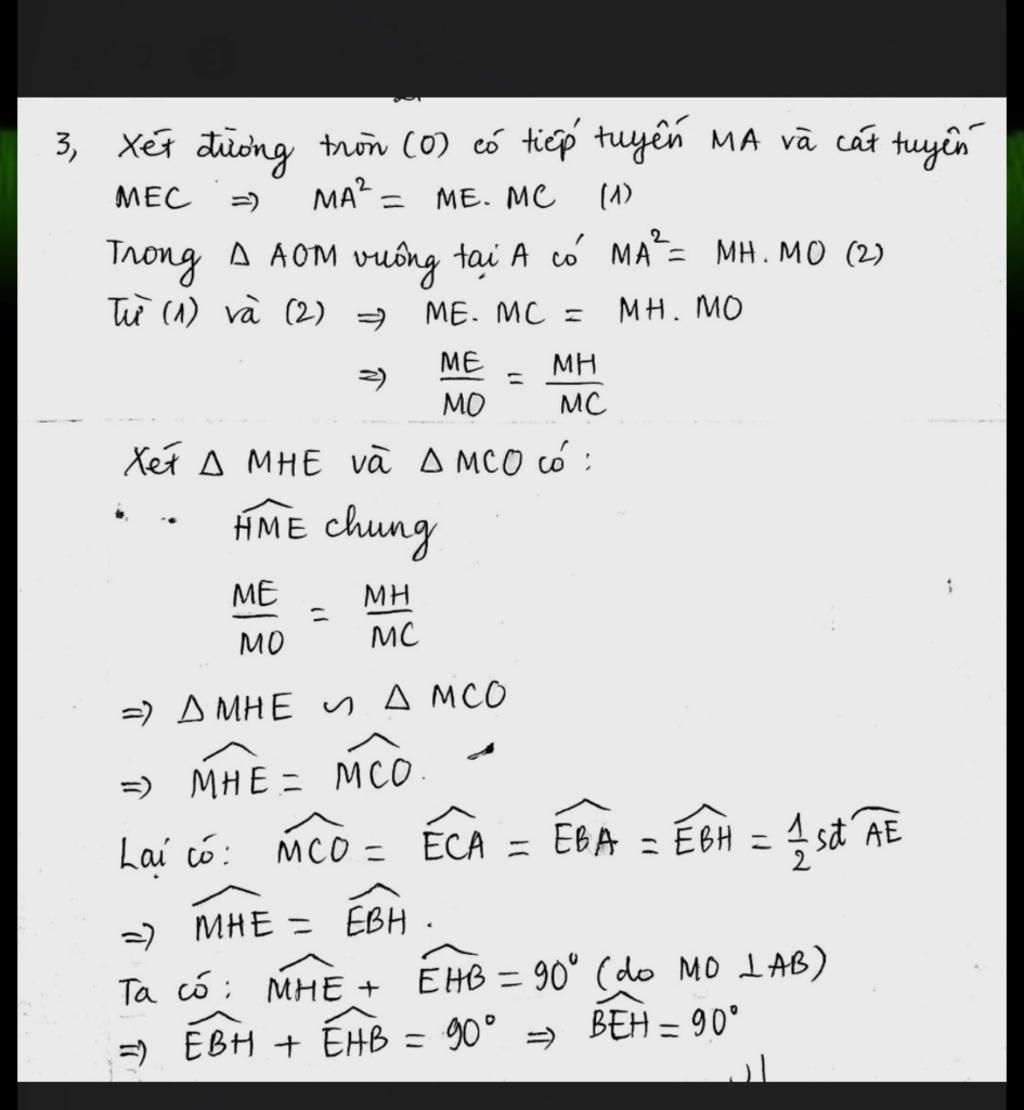 3, Xét đường tròn (O) có tiếp tuyến MA và cát tuyến
MEC => MA² = ME. MC (1)
Trong Δ AOM vuông tại A có MA² = MH. MO (2)
Từ (1) và (2) => ME. MC = MH. MO
=> ME/MO = MH/MC
Xét Δ MHE và Δ MCO có :
\widehat{HME} chung
ME/MO = MH/MC
=> Δ MHE ∽ Δ MCO
=> \widehat{MHE} = \widehat{MCO}.
Lại có: \widehat{MCO} = \widehat{ECA} = \widehat{EBA} = \widehat{EBH} = 1/2 sđ \widehat{AE}
=> \widehat{MHE} = \widehat{EBH}.
Ta có: \widehat{MHE} + \widehat{EHB} = 90° (do MO ⊥ AB)
=> \widehat{EBH} + \widehat{EHB} = 90° => \widehat{BEH} = 90°